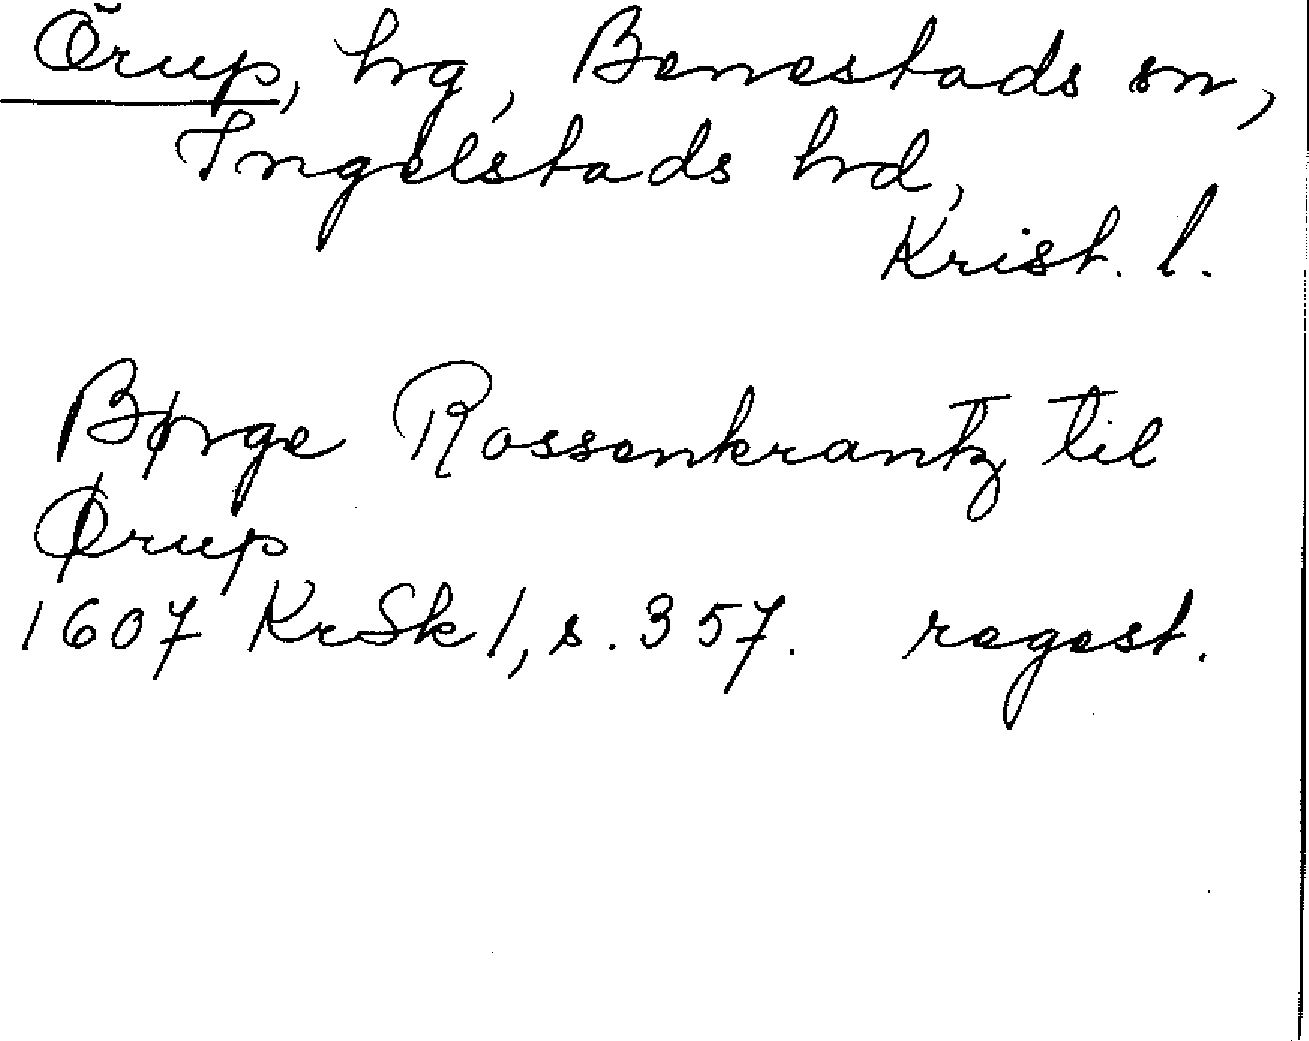 Örup, hg, Benestads sn,
Ingelstads hd,
Krist. l.
Børge Rossenkrantz til
Ørup
1607 KrSk 1, s. 357. regest.